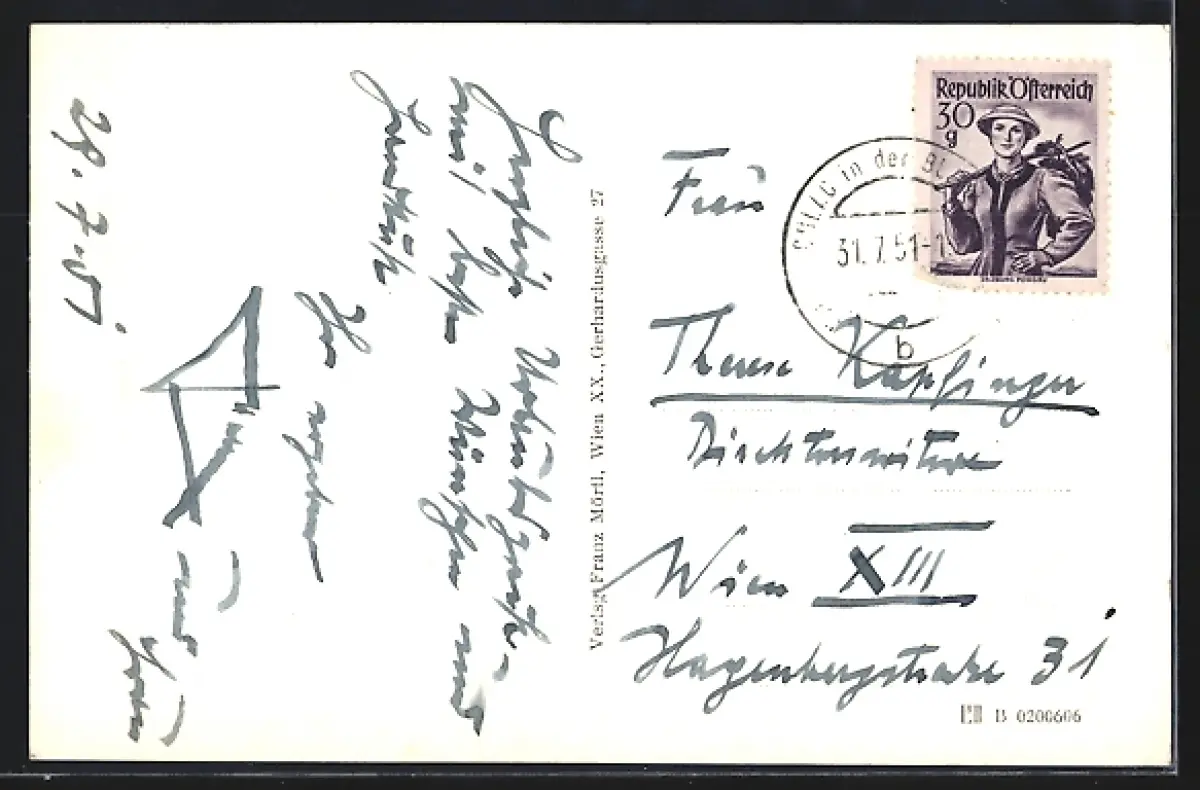 29. 7. 51
Herzliche Urlaubsgrüße
mit besten Wünschen und
Ihr ergebener
und Frau
Verlag Franz Mörtl, Wien XX., Gerhardusgasse 27
Republik Österreich
30
g
in der
31. 7. 51-1
b
Frau
Therese Kapfinger
Wien XIII
Hagenbergstraße 31
B 0200606